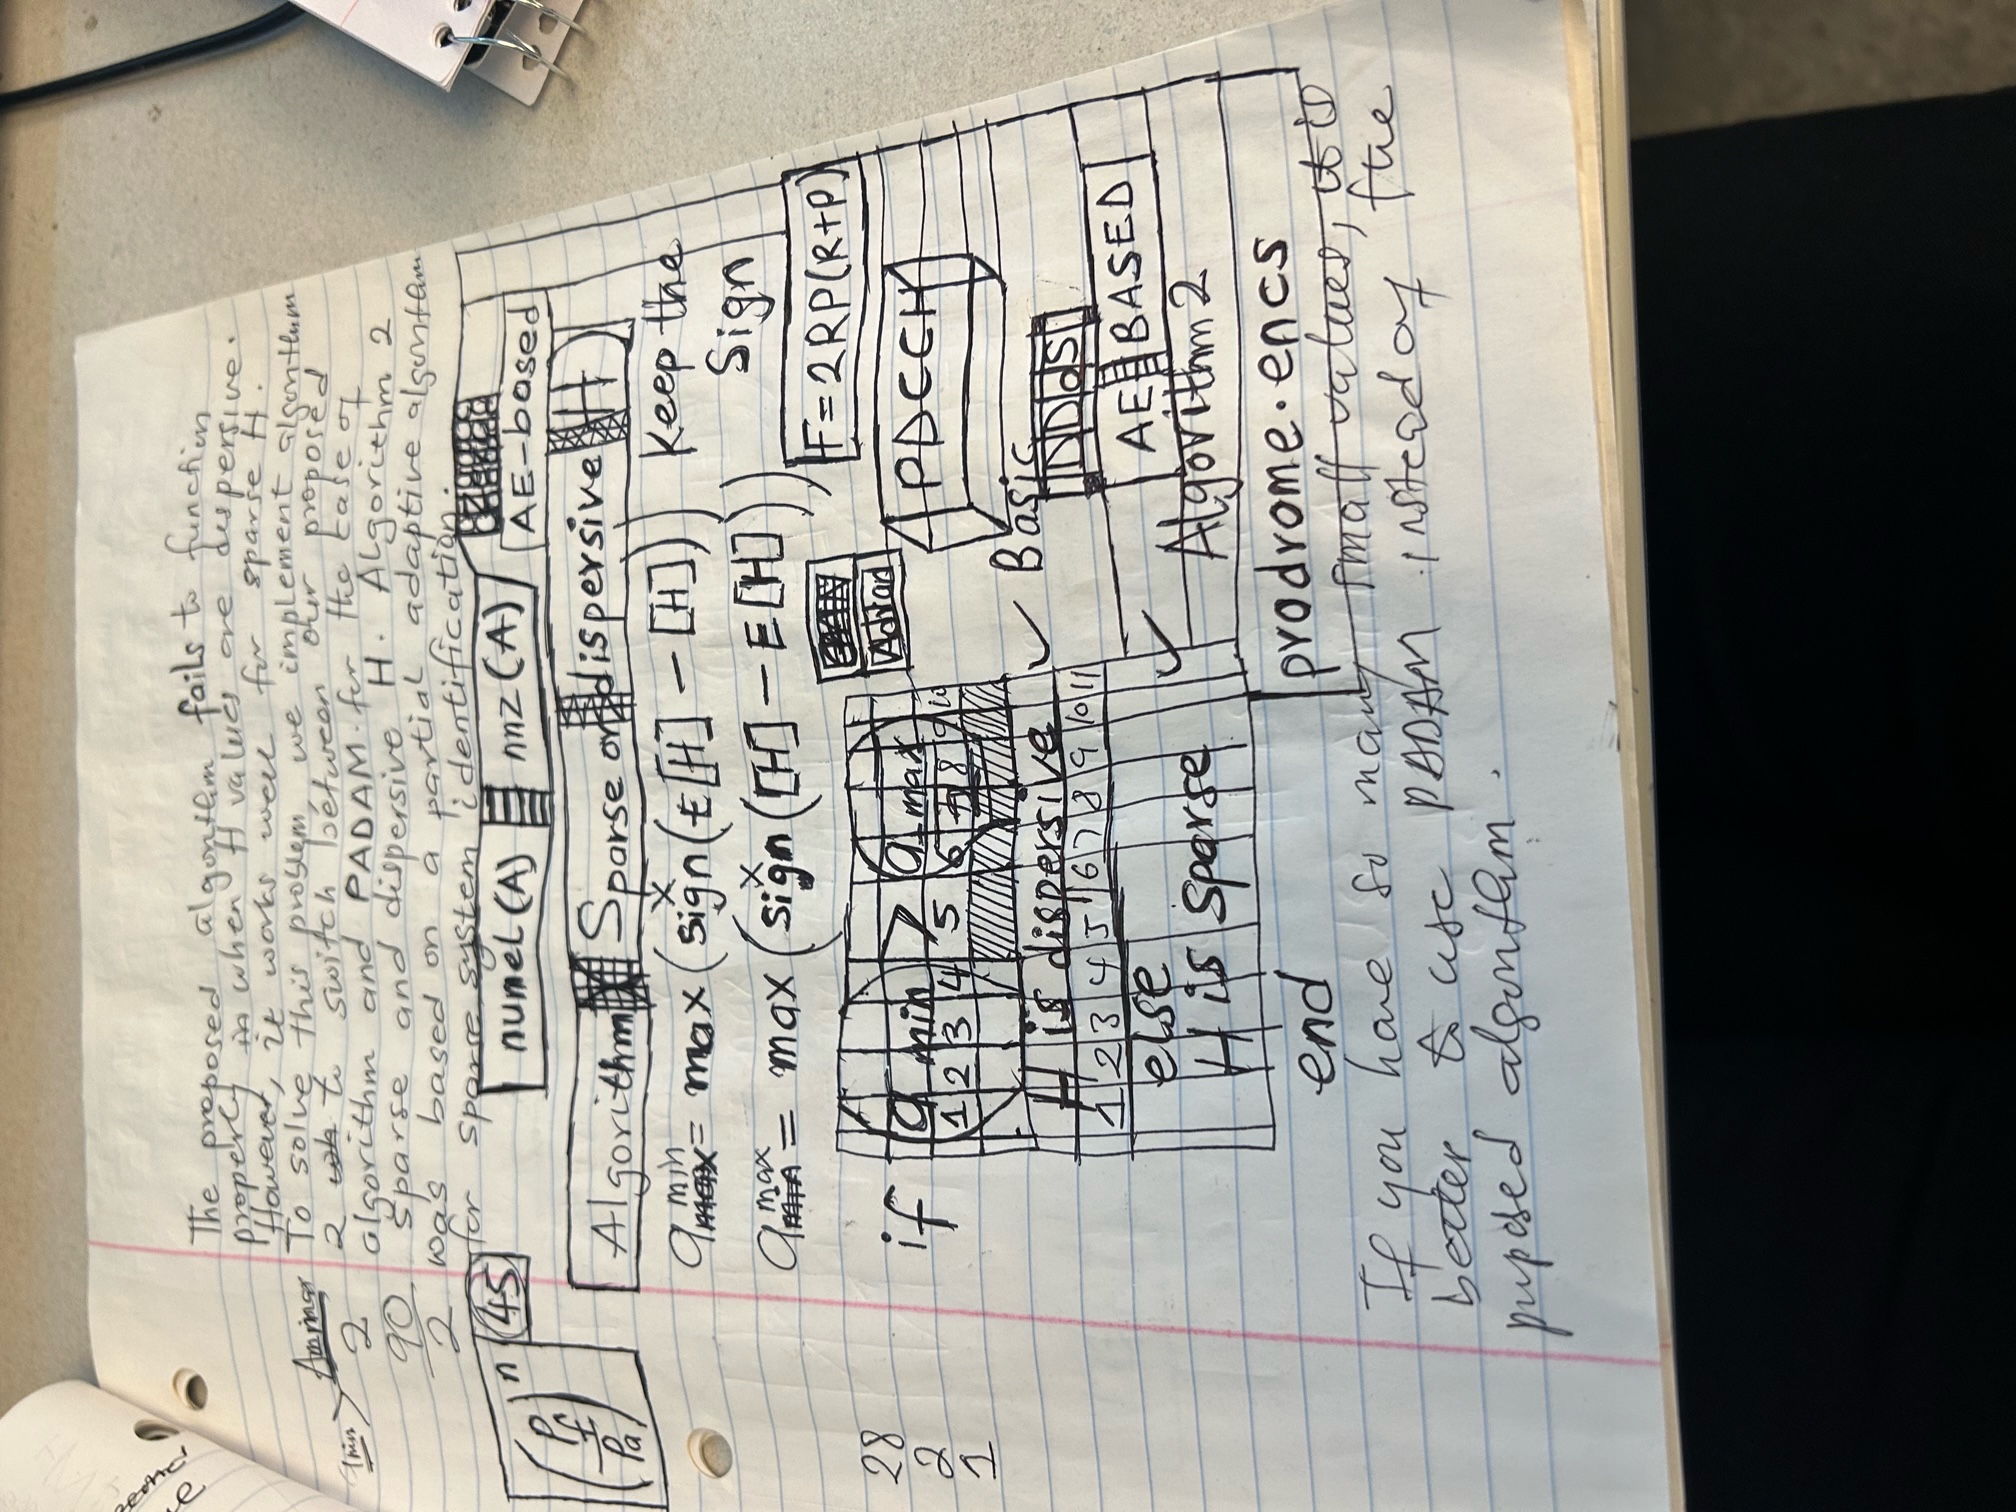 The proposed algorithm fails to function
properly in when H values are dispersive.
However, it works well for sparse H.
To solve this problem, we implement algorithm
2 to switch between our proposed
algorithm and PADAM for the case of
sparse and dispersive H. Algorithm 2
was based on a partial adaptive algorithm
for sparse system identification.
2
90
2
45
(Pf/Pa)^n
numel(A) nnz(A)
AE-based
Algorithm Sparse or dispersive H
a min max = max(sign(E[H] - [H])) Keep the
Sign
a max min = max(sign([H] - E[H]))
F=2RP(R+P)
28
2
1
if a_min > a_max
1 2 3 4 5 6 7 8 9 10
PDCCH
H is dispersive ✓ Basic
DDdS
1 2 3 4 5 6 7 8 9 10 11
AE BASED
else
H is sparse ✓ Algorithm 2
prodrome.encs
end
If you have so many small values, it is
better to use PADAM instead of the
puposed algorithm.